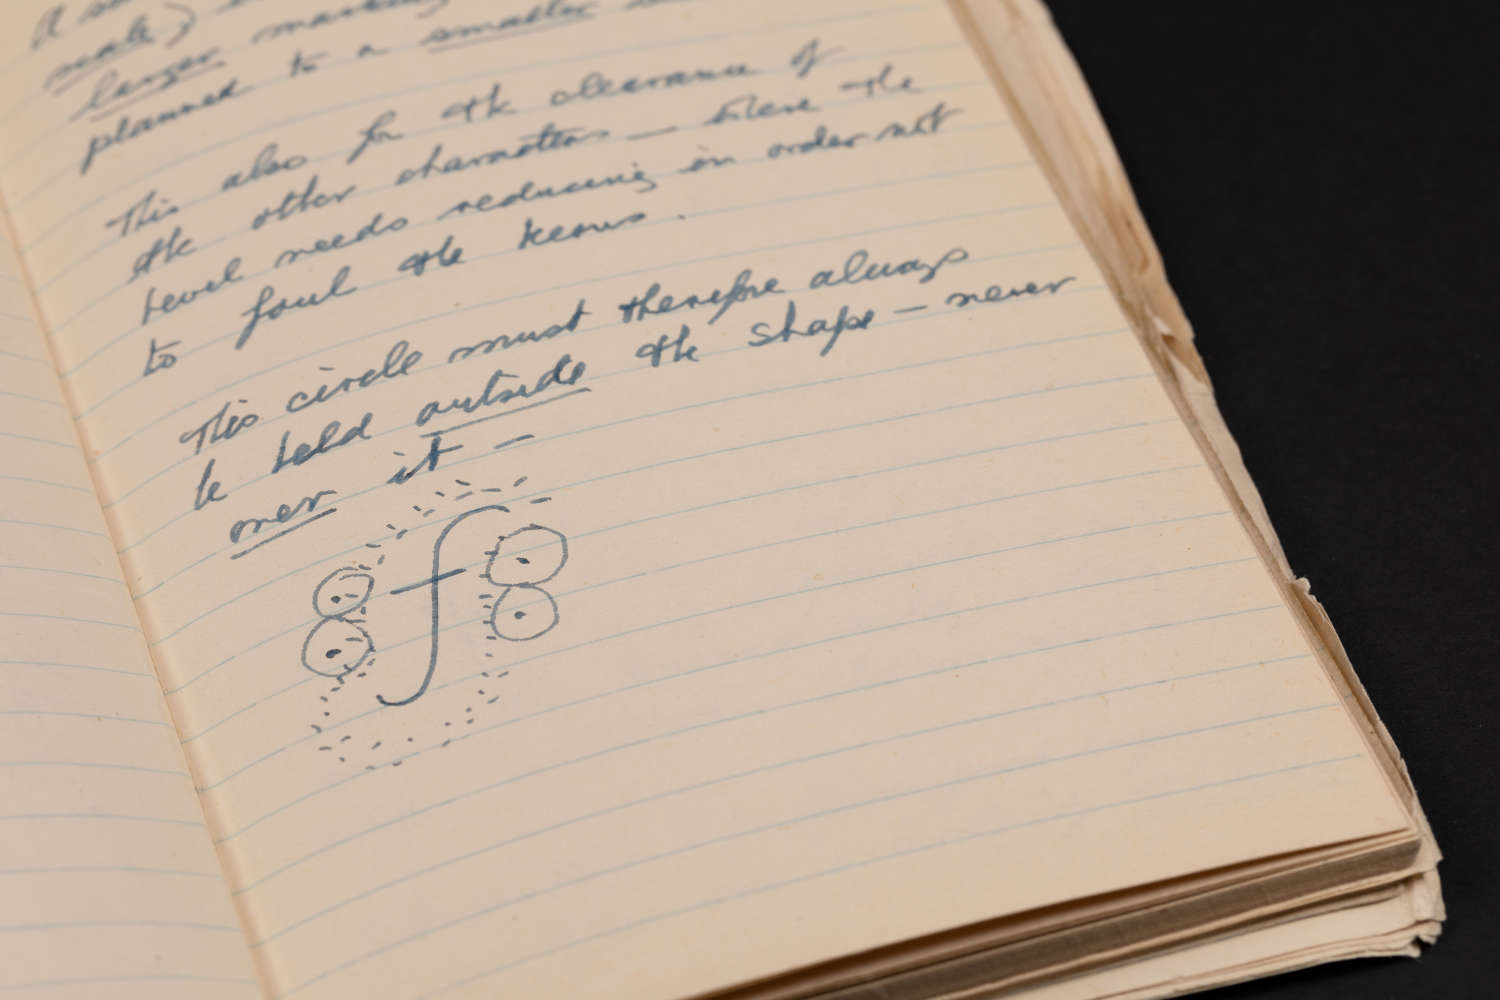 scale)
larger marking
planned to a smaller
This also for the clearance of
the other characters — where the
bevel needs reducing in order not
to foul the kerns.
This circle must therefore always
be held outside the shape — never
over it —
f